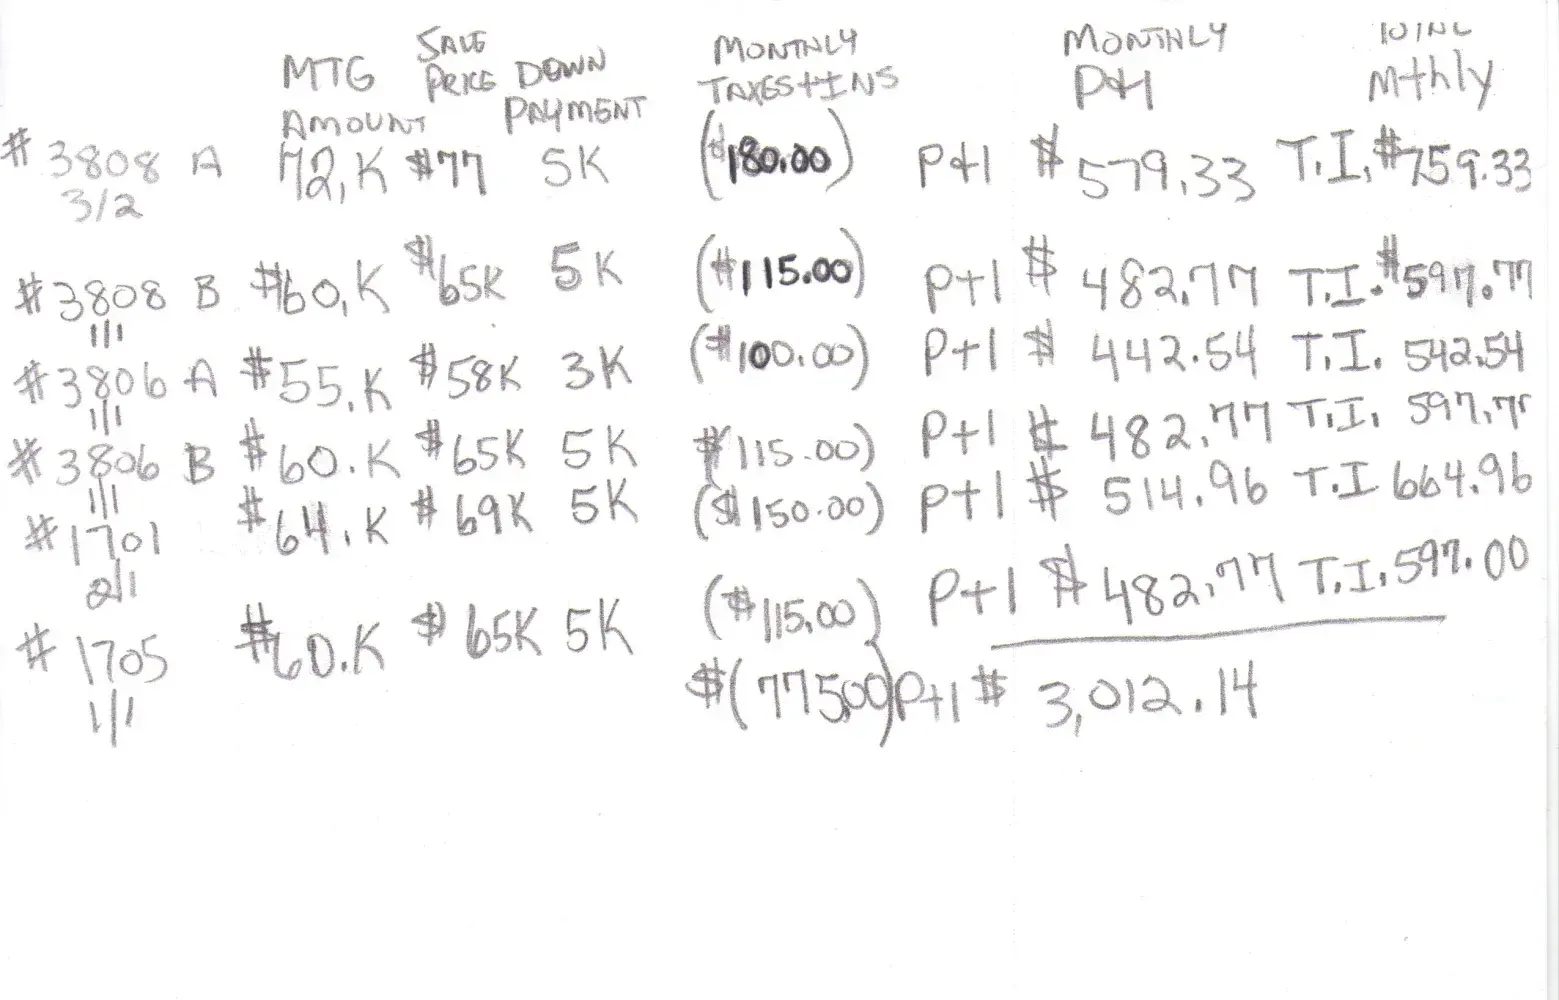 MTG AMOUNT SALE PRICE DOWN PAYMENT MONTHLY TAXES+INS MONTHLY P+I Mthly
# 3808 A 72,K $77 5K ($180.00) P+I $ 579.33 T.I. $759.33
3/2
# 3808 B $60,K $65K 5K ($115.00) P+I $ 482.77 T.I. $597.77
1/1
# 3806 A $55,K $58K 3K ($100.00) P+I $ 442.54 T.I. 542.54
1/1
# 3806 B $60.K $65K 5K ($115.00) P+I $ 482.77 T.I. 597.77
1/1
# 1701 $64.K $69K 5K ($150.00) P+I $ 514.96 T.I 664.96
2/1
# 1705 $60.K $65K 5K ($115.00) P+I $ 482.77 T.I. 597.00
1/1
$(775.00) P+I $ 3,012.14